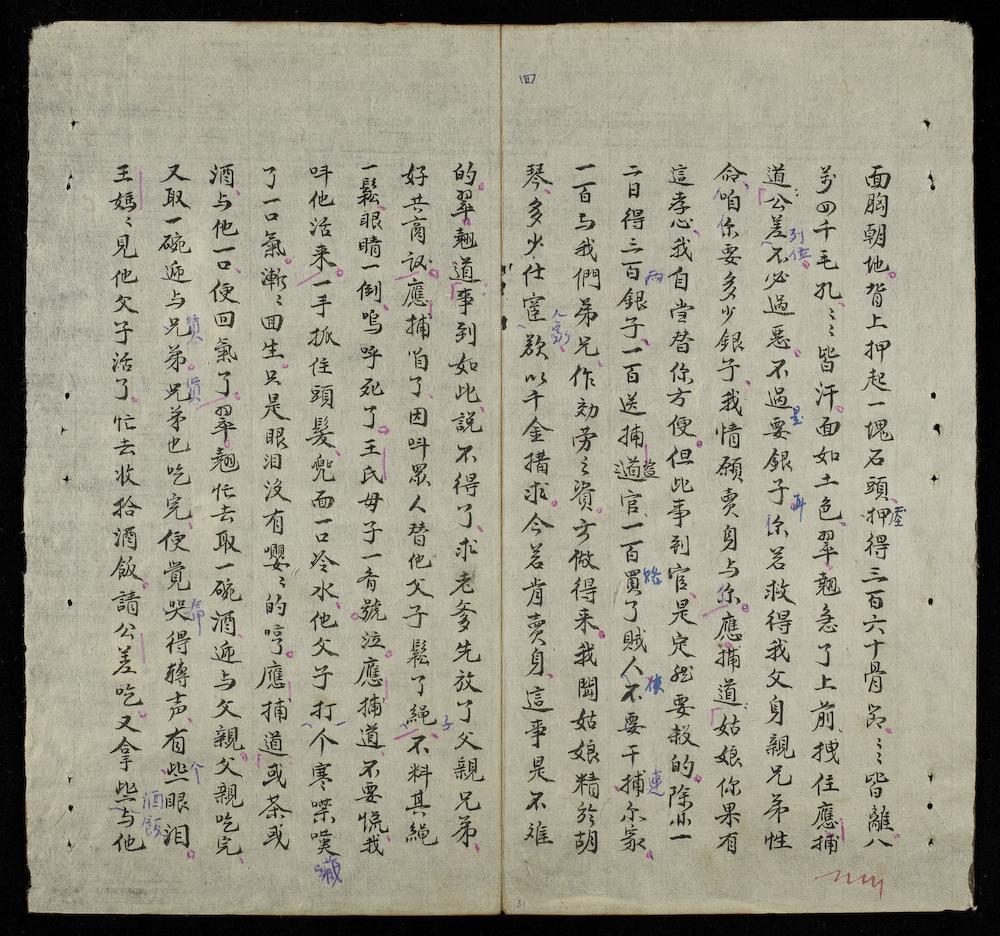 四
面胸朝地背上押起一塊石頭押得三百六十骨節〻皆離八
萬四千毛孔〻〻皆汗面如土色翠翹急了上前拽住應捕
道公差不必過惡不過要銀子你若救得我父身親兄弟性
命咱你要多少銀子我情願賣身与你應捕道姑娘你果有
這孝心我自当替你方便但此事到官是定然要殺的除非一
二日得三百銀子一百送捕道官一百買了賊人不要干捕尔家
一百与我們弟兄作効劳之資方做得来我聞姑娘精於胡
琴多少仕宦欲以千金搆求今若肯賣身這事是不难
的翠翹道事到如此説不得了求老爹先放了父親兄弟
好共商议應捕肯了因呌眾人替他父子鬆了繩不料其繩
一鬆眼睛一倒嗚呼死了王氏母子一斉號泣應捕道不要慌我
呌他活来一手抓住頭髮兜面一口冷水他父子打个寒噤嘆
了一口氣漸〻面生只是眼泪没有嚶〻的哼應捕道或茶或
酒与他一口便回氣了翠翹忙去取一碗酒递与父親父親吃完
又取一碗递与兄弟兄弟也吃完便覚哭得轉声有些眼泪
王媽〻見他父子活了忙去收拾酒飯請公差吃又拿些与他
列位
压
是
再
两
營
給
連
人家
子
个
酒飯
31